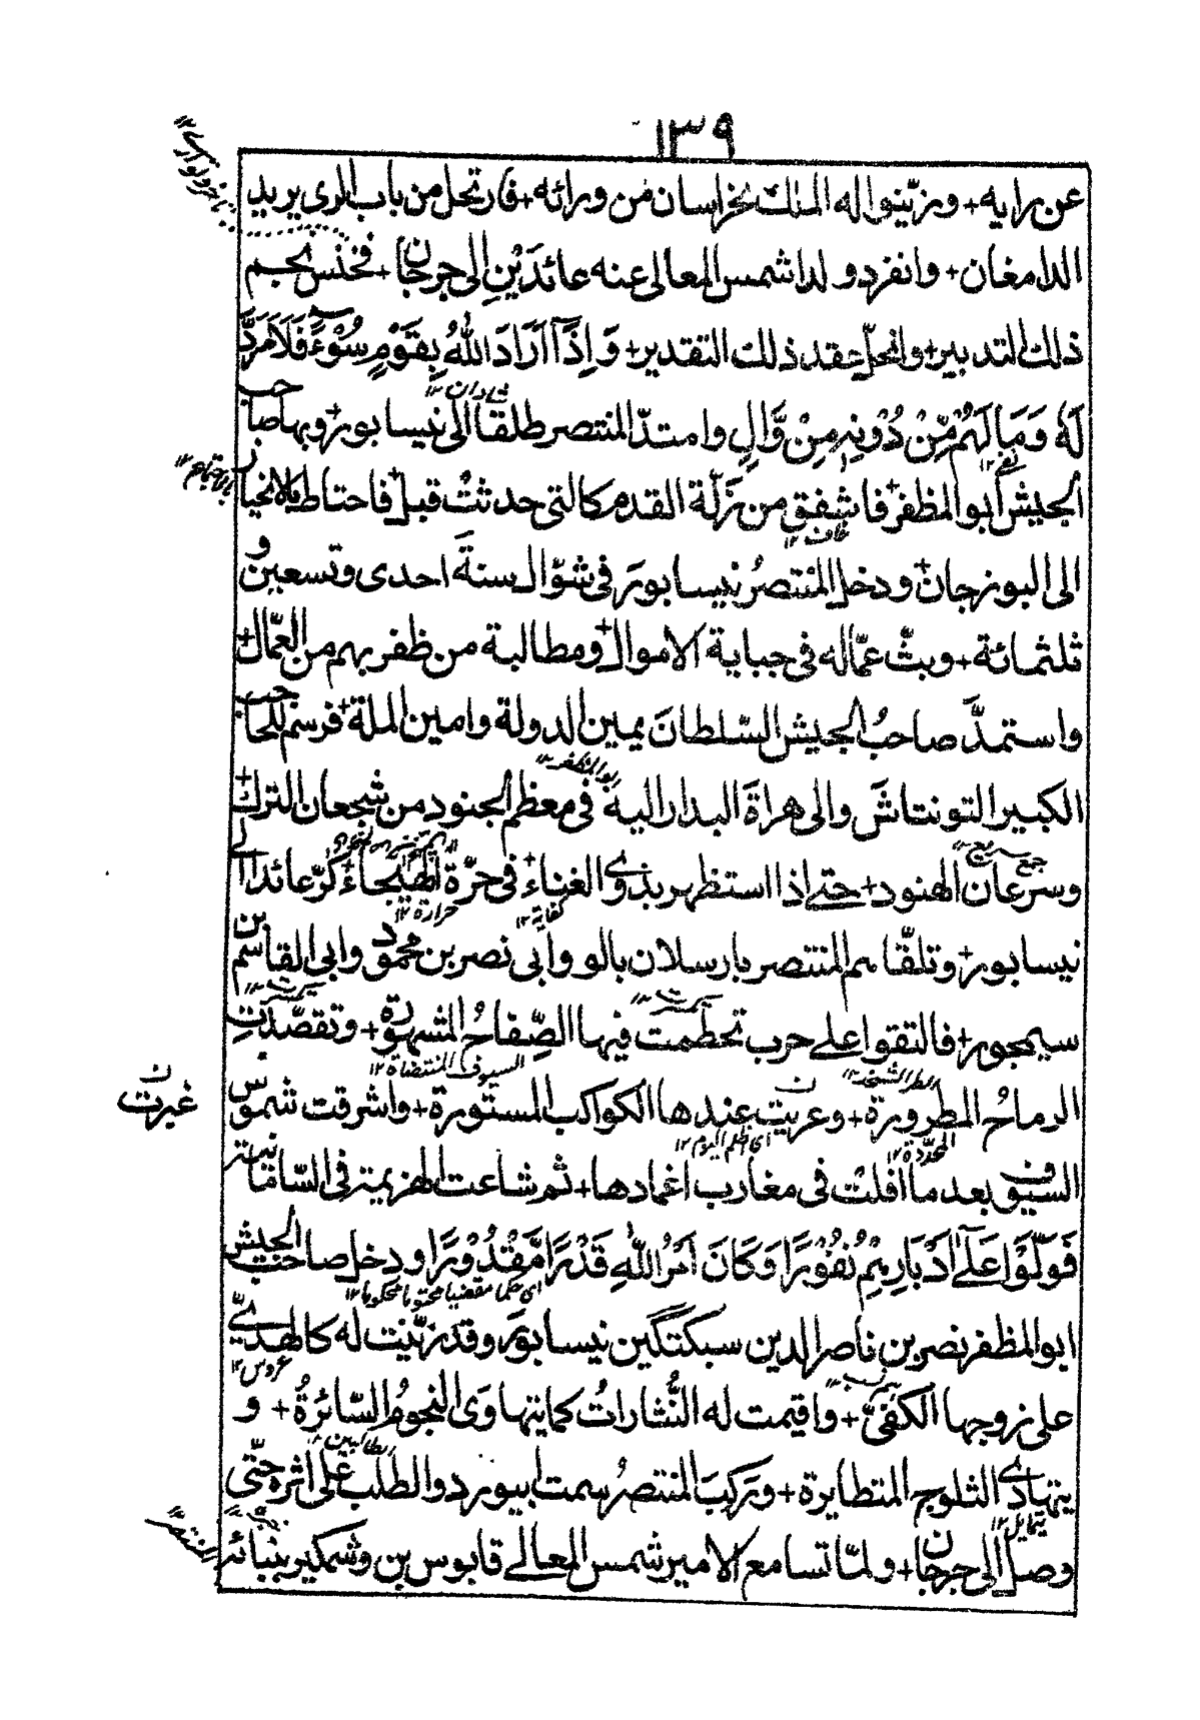 ١٣٩
عن رايه+ وزيّنوا له الملك بخراسان من ورائه+ فارتحل من باب الرى يريد
الدامغان+ وانفرد ولدا شمس المعالى عنه عائدَيْنِ الى جرجان+ فخنس نجم
ذلك التدبير+ وانحلّ عقد ذلك التقدير+ وَاِذَآ اَرَادَ اللهُ بِقَوْمٍ سُوْءً فَلَا مَرَدَّ
لَهٗ وَمَا لَهُمْ مِّنْ دُوْنِهٖ مِنْ وَّالٍ وامتدّ المنتصر طلقا الى نيسابور+ وبها صاحب
الجيش ابو المظفر+ فاشفق من زلّة القدم كالتى حدثت قبل+ فاحتاط بالانحياز
الى البوزجان+ ودخل المنتصرُ نيسابورَ فى شوّال سنةَ احدى وتسعين و
ثلثمائة+ وبثّ عمّاله فى جباية الاموال+ ومطالبة من ظفر بهم من العمّال+
واستمدَّ صاحبُ الجيش السّلطانَ يمين الدولة وامين الملة+ فرسم للحاجب
الكبير التونتاش والى هراةَ البدار اليه فى معظم الجنود من شجعان الترك+
وسرعان الهنود+ حتى اذا استظهر بذوى الغناء+ فى حرّة الهيجاء+ كرّ عائدا الى
نيسابور+ وتلقّاهم المنتصر بارسلان بالو وابى نصر بن محمود وابى القاسم بن
سيمجور+ فالتقوا على حرب تحطمت فيها الصِّفاحُ المشهورة+ وتقصّدتِ
الرماحُ المطرورة+ وعريت عندها الكواكب المستورة+ واشرقت شموس
غبرت
السيوف بعد ما افلت فى مغارب اغمادها+ ثم شاعت الهزيمة فى السّامانية
فَوَلَّوْا عَلٰٓى اَدْبَارِهِمْ نُفُوْرًا وَكَانَ اَمْرُ اللّٰهِ قَدَرًا مَّقْدُوْرًا ودخل صاحب الجيش
ابو المظفر نصر بن ناصر الدين سبكتگين نيسابور وقد زيّنت له كالهدىّ
على زوجها الكفىّ+ واقيمت له النُّثارات كما يتهاوى النجومُ السّائرةُ+ و
يتهادى الثلوج المتطايرة+ وركبَ المنتصرُ سمت ابيورد والطلب على اثره حتّى
وصل الى جرجان+ ولمّا تسامع الامير شمس المعالى قابوس بن وشمكير بنبائه